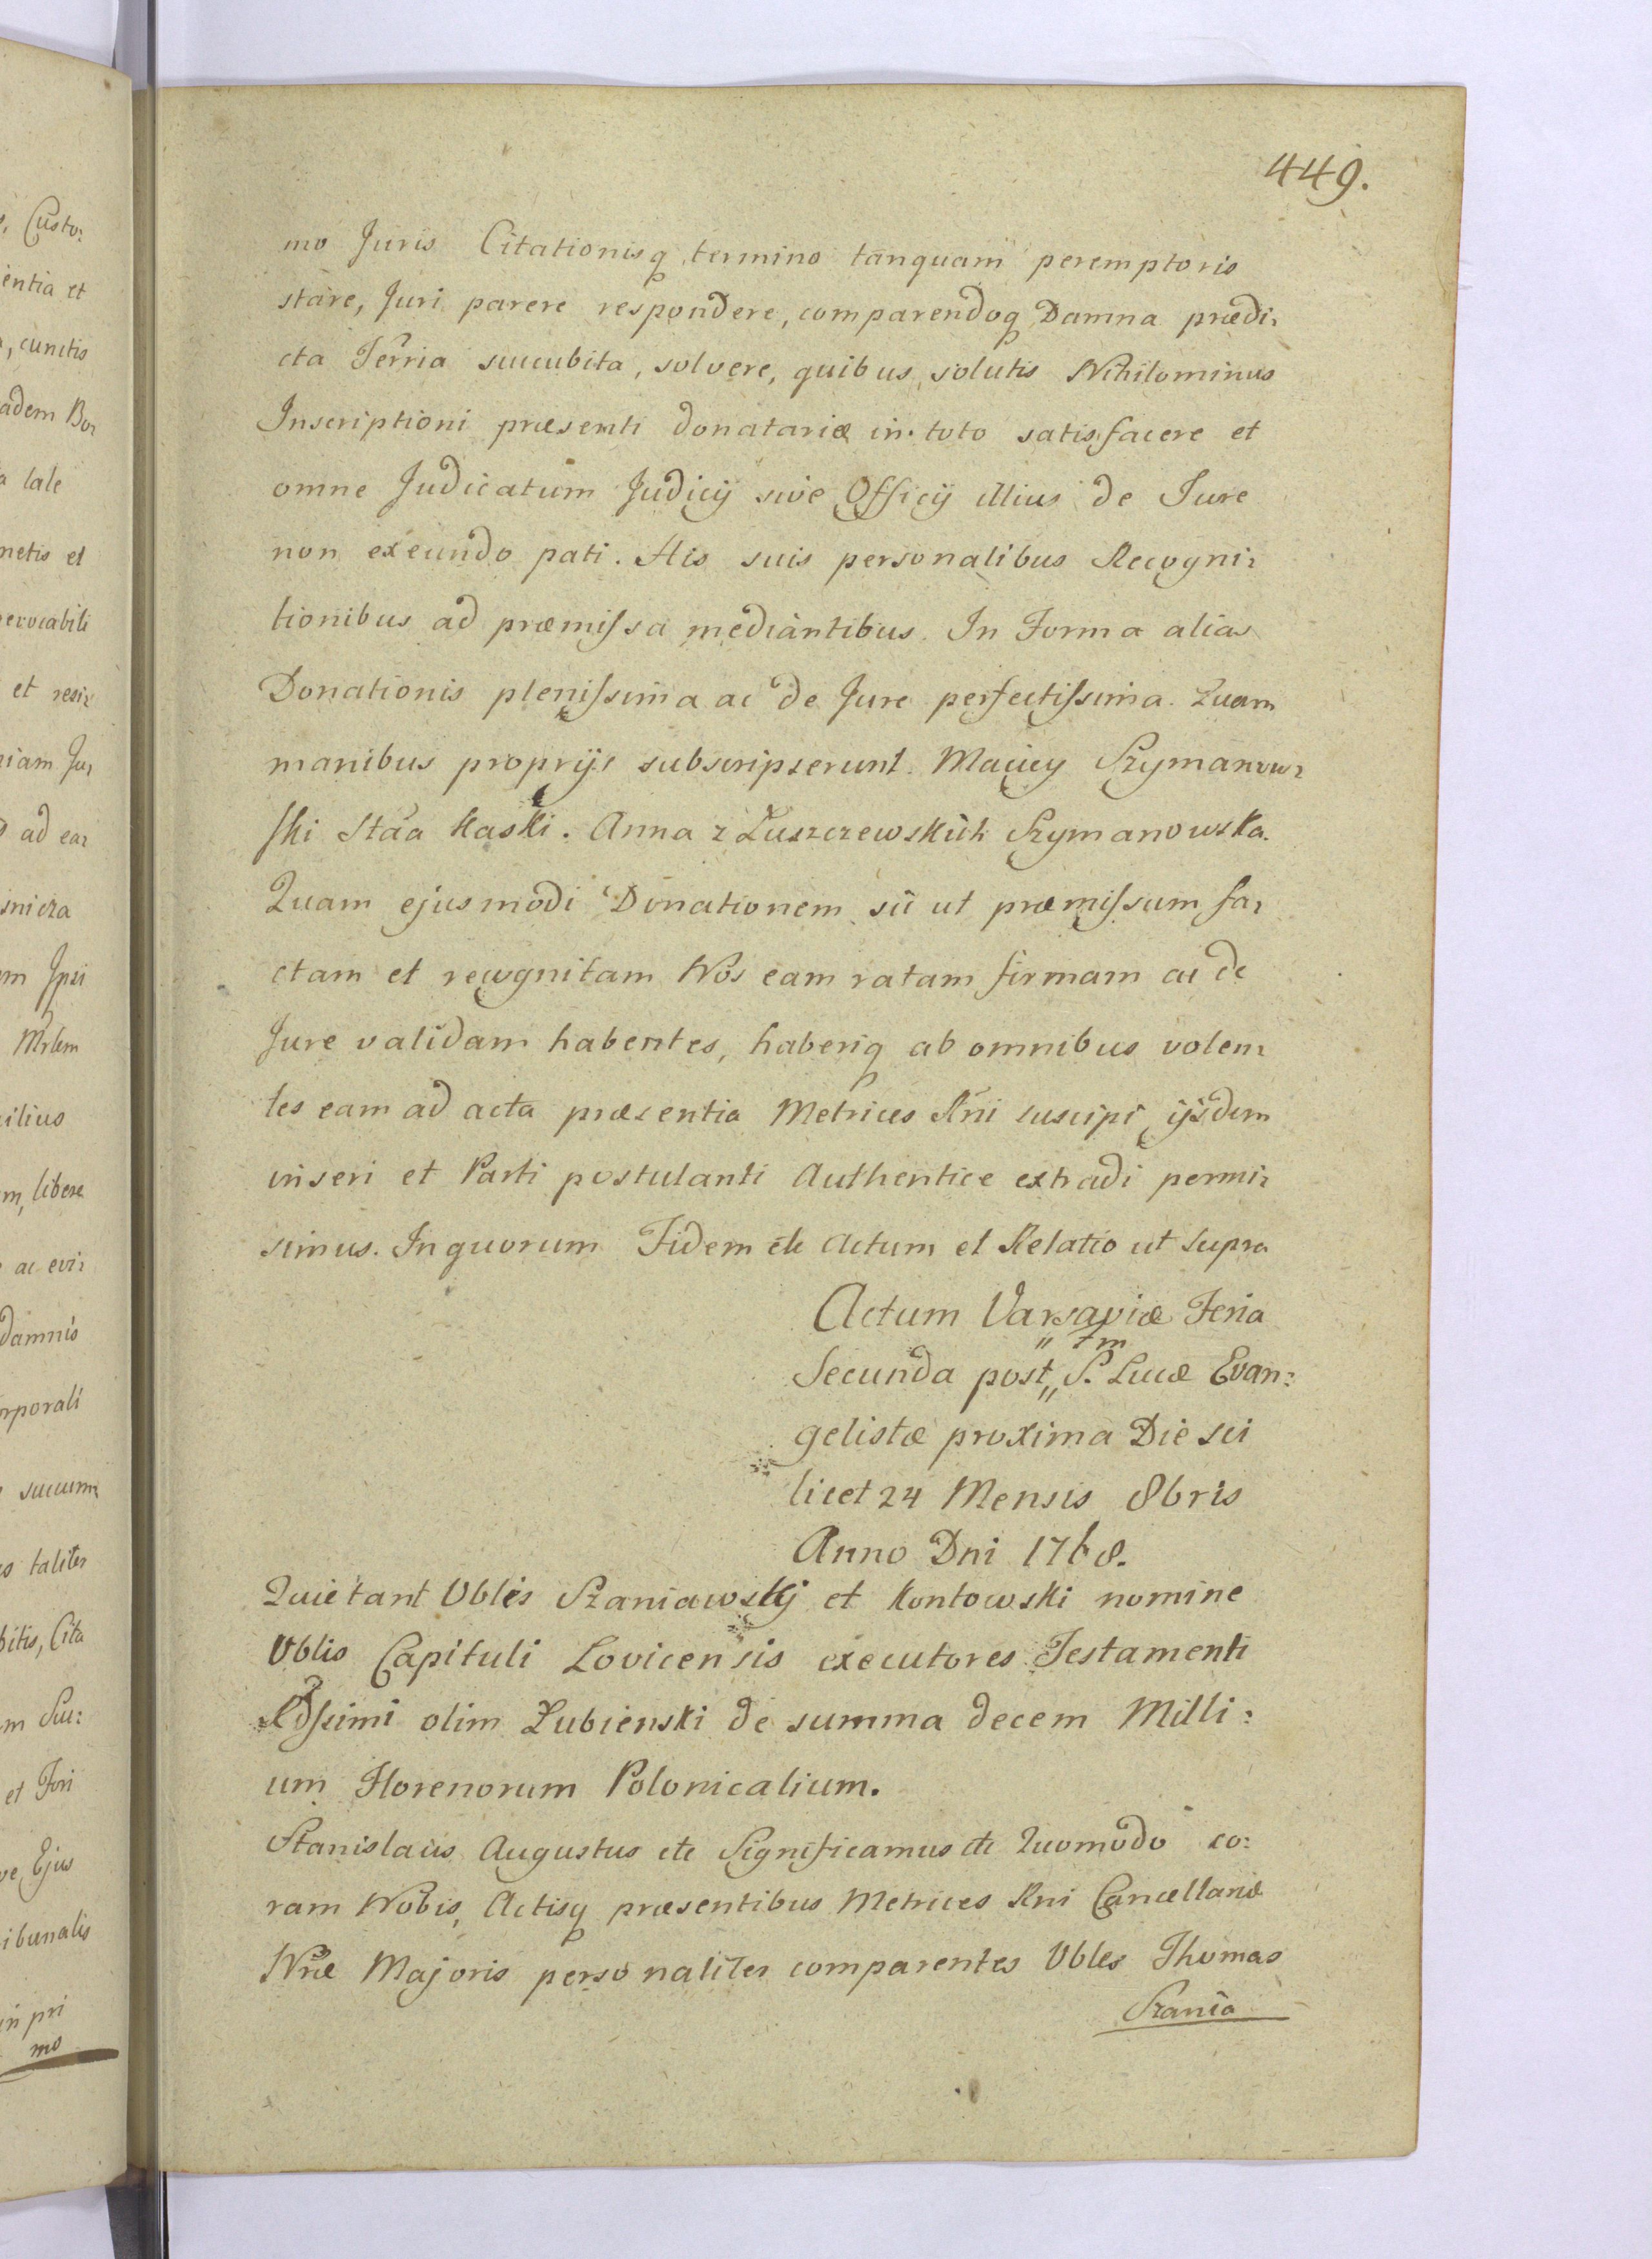 449.
mo Juris Citationisq termino tanquam peremptorio
stare, Juri parere respondere, comparendoq Damna prædi:
cta Terria succubita, solvere, quibus solutis Nihilominus
Inscriptioni præsenti donatariæ in toto satisfacere et
omne Judicatum Judicij sive Officij illius de Jure
non exeundo pati. His suis personalibus Recogni:
tionibus ad præmissa mediantibus. In Forma alias
Donationis plenissima ac de Jure perfectissima. Quam
manibus proprijs subscripserunt. Maciey Szymanow:
ski Staa Kaski. Anna z Łuszczewskich Szymanowska.
Quam ejusmodi Donationem sii ut præmissum fa:
ctam et recognitam Nos eam ratam firmam ac de
Jure validam habentes, haberiq ab omnibus volen:
tes eam ad acta præsentia Metrices Rni suscipi ijsdem
inseri et Parti postulanti Authentice extradi permi:
simus. In quorum Fidem etc Actum et Relatio ut supra
Actum Varsaviæ Feria
Secunda post „ Ftm „ S. Lucæ Evan:
gelistæ proxima Die sci
licet 24 Mensis 8bris
Anno Dni 1768.
Quietant Vbles Szaniawskj et Kontowski nomine
Vblis Capituli Lovicensis executores Testamenti
olim Łubienski de summa decem Milli:
um Florenorum Polonicalium.
Stanislaus Augustus etc Significamus etc Quomodo co:
ram Nobis, Actisq præsentibus Metrices Rni Cancellariæ
Nræ Majoris personaliter comparentes Vbles Thomas
Szania